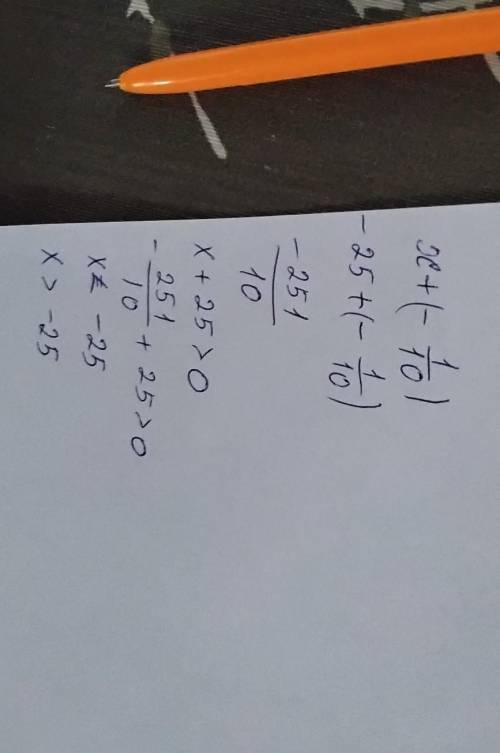 x + (- 1/10)
- 25 + (- 1/10)
- 251/10
x + 25 > 0
- 251/10 + 25 > 0
x ≮ -25
x > -25